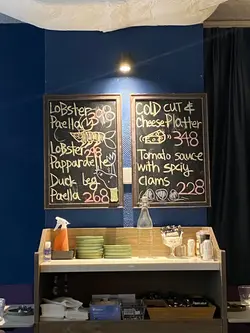 Lobster
Paella 349
Lobster
Pappardelle
Duck leg
Paella 268
COLD CUT &
Cheese Platter
348
Tomato sauce
with spicy
clams 228